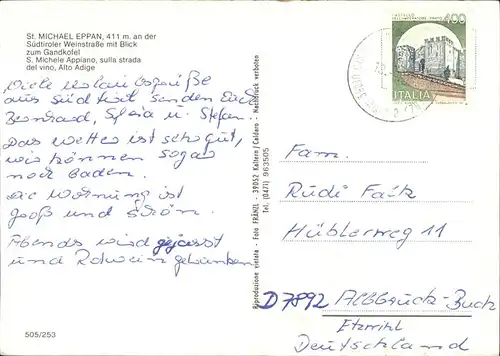 St. MICHAEL EPPAN, 411 m. an der
Südtiroler Weinstraße mit Blick
zum Gandkofel
S. Michele Appiano, sulla strada
del vino, Alto Adige
Viele Urlaubsgrüße
aus Südtirol senden Euch
Bernhard, Sylvia u. Stefan.
Das Wetter ist sehr gut,
wir können sogar
noch baden.
Die Wohnung ist
groß und schön.
Abends wird gejasst
und Rotwein getrunken
505/253
Riproduzione vietata - Foto FRÄNZL - 39052 Kaltern/Caldaro - Nachdruck verboten
Tel. (0471) 963505
400
ITALIA
Fam.
Rudi Falk
Hüblerweg 11
D 7892 Albbruck-Buch
Etzwihl
Deutschland